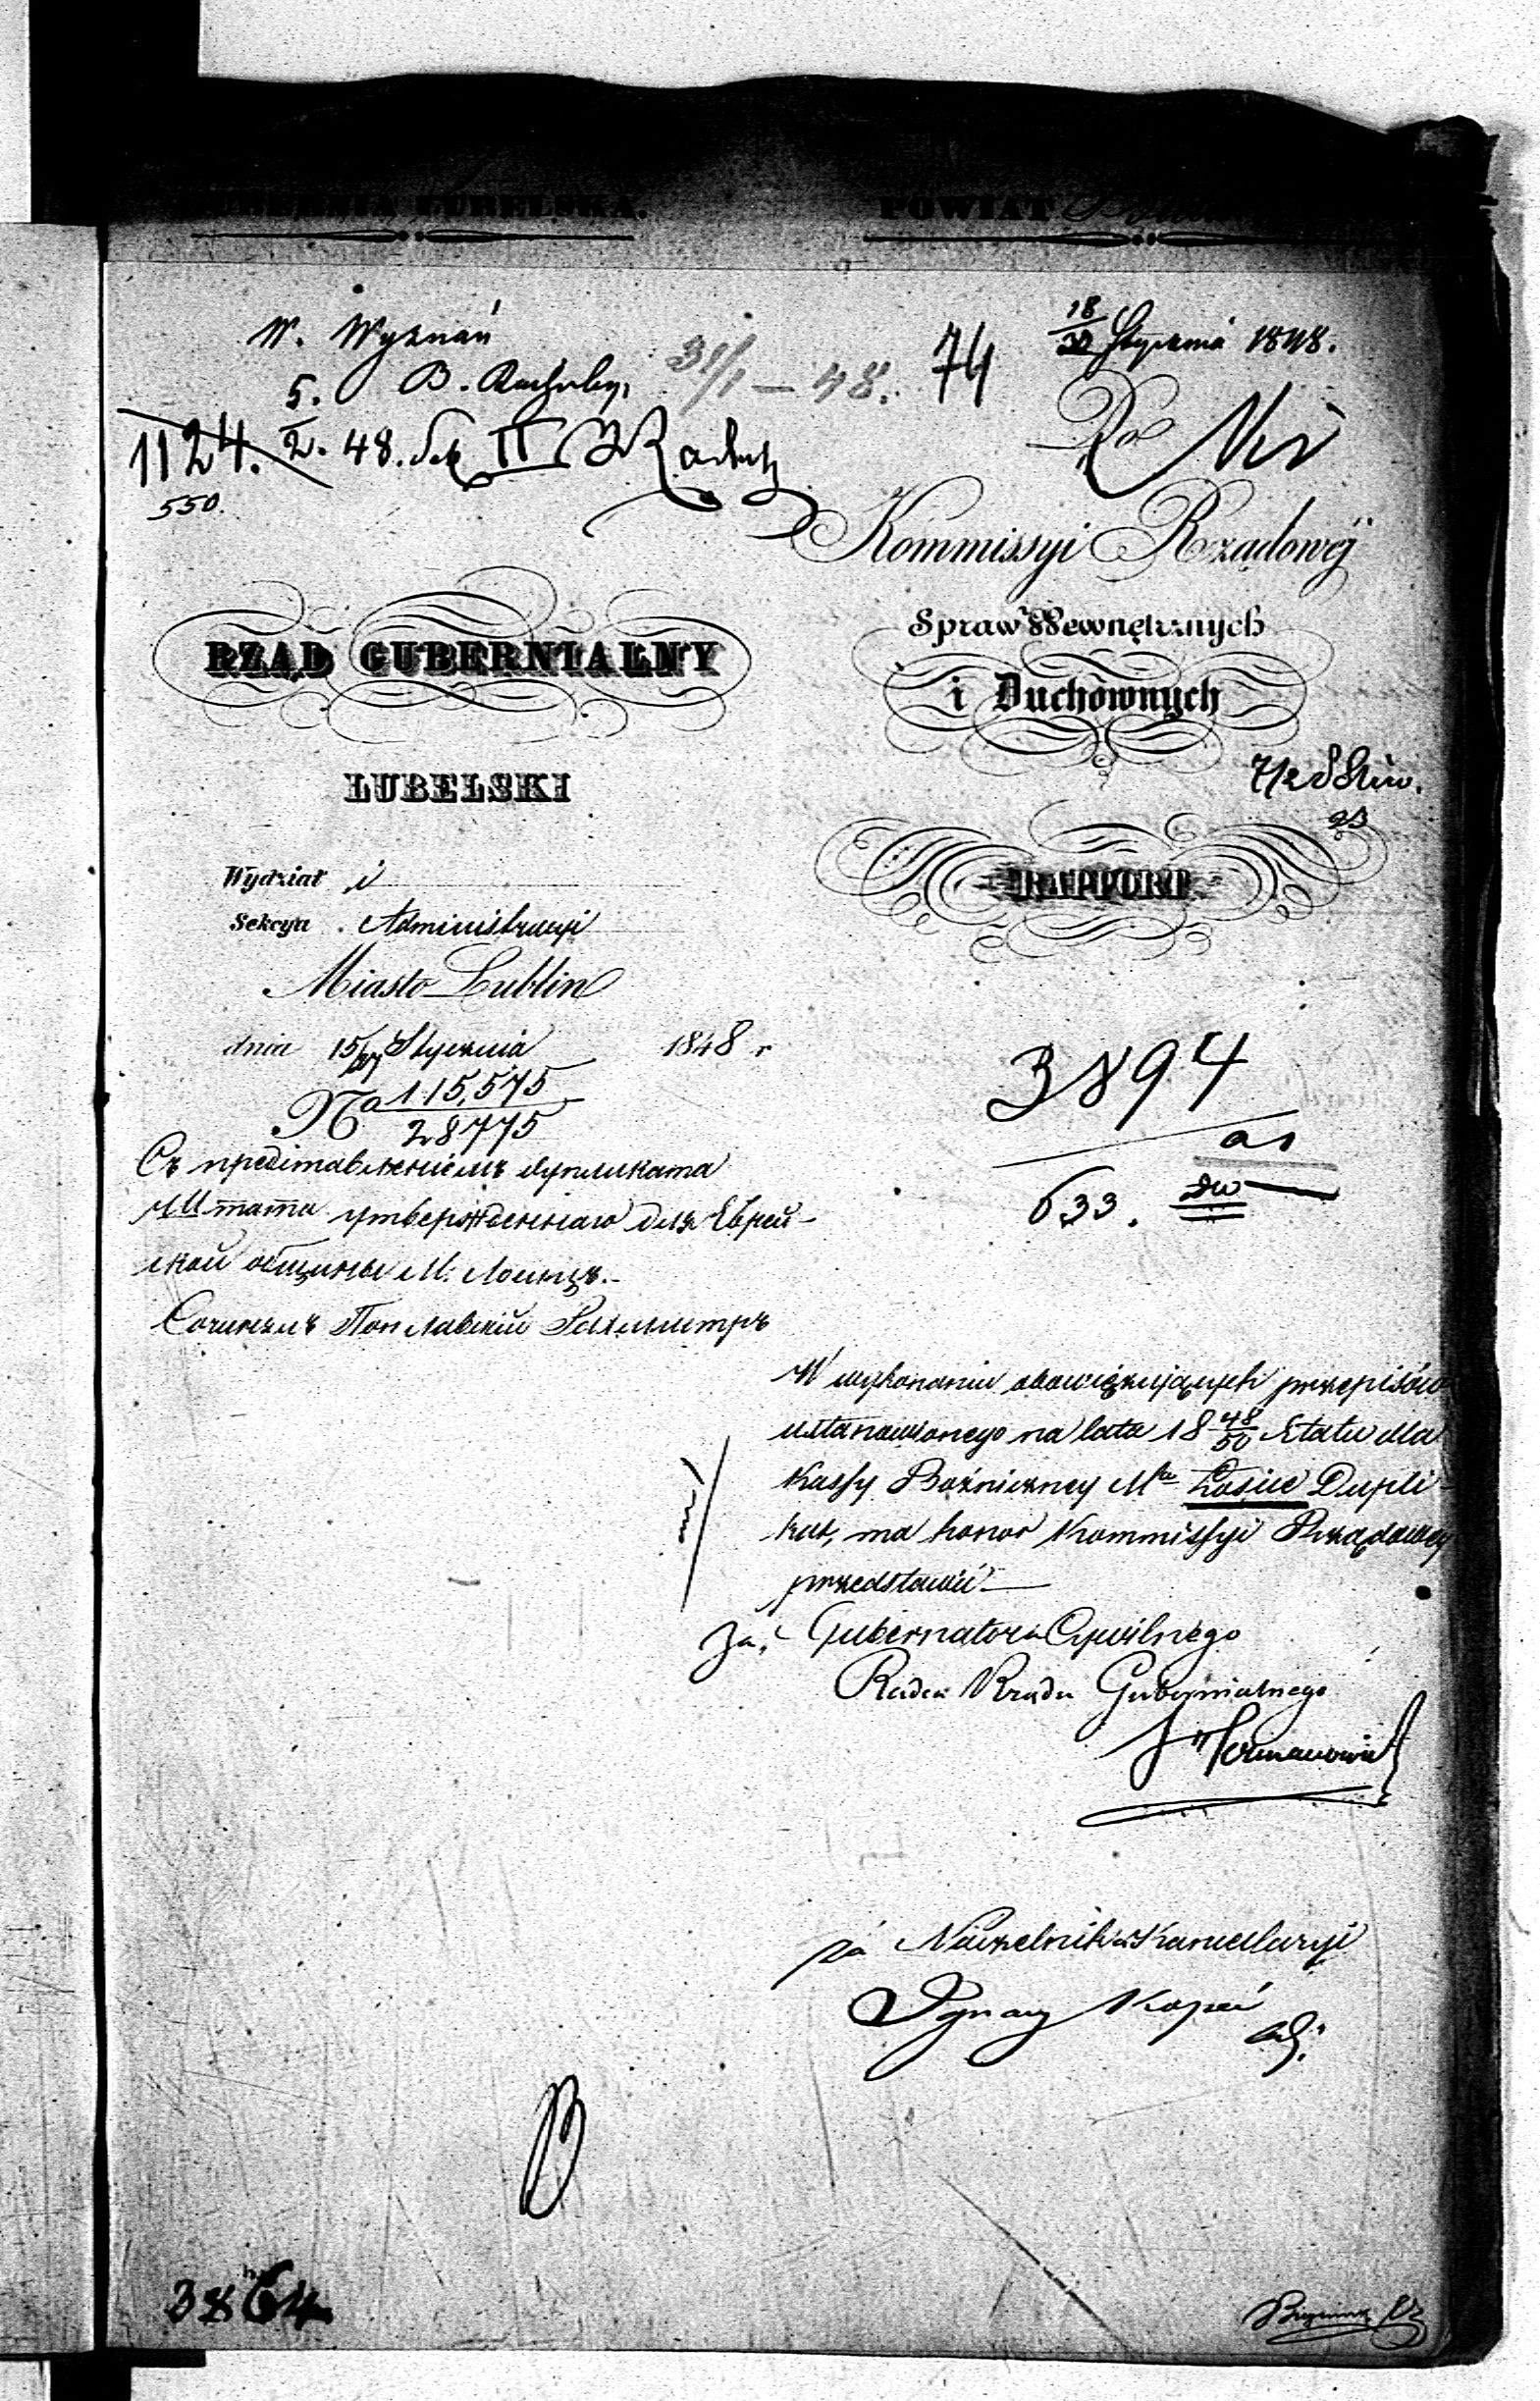 GUBERNIA LUBELSKA.
POWIAT
W. Wyznań
31/1 – 48.
74
18/30 Stycznia 1848.
5/2. 48. Sek II
1124.
550.
Do
Kommissyi Rządowéj
Spraw Wewnętrznych
i Duchownych
RZĄD GUBERNIALNY
LUBELSKI
RAPPORT.
Wydział
Sekcya Administracyi
Miasto Lublin
dnia 15/27 Stycznia 1848 r
No 115,575
28775
3894
633.
Съ представленіемъ дупликата
Штата утвержденнаго для Еврей-
ской общины М. Лосицъ.
W wykonaniu obowiązujących przepisów
ustanowionego na lata 18 48/50 Etatu dla
Kassy Bożniczney Mta Łosice Dupli-
kat, ma honor Kommissyi Rządowey
przedstawić
Za Gubernatora Cywilnego
Radca Rządu Gubernialnego
za Naczelnika Kancellaryi
Ignacy